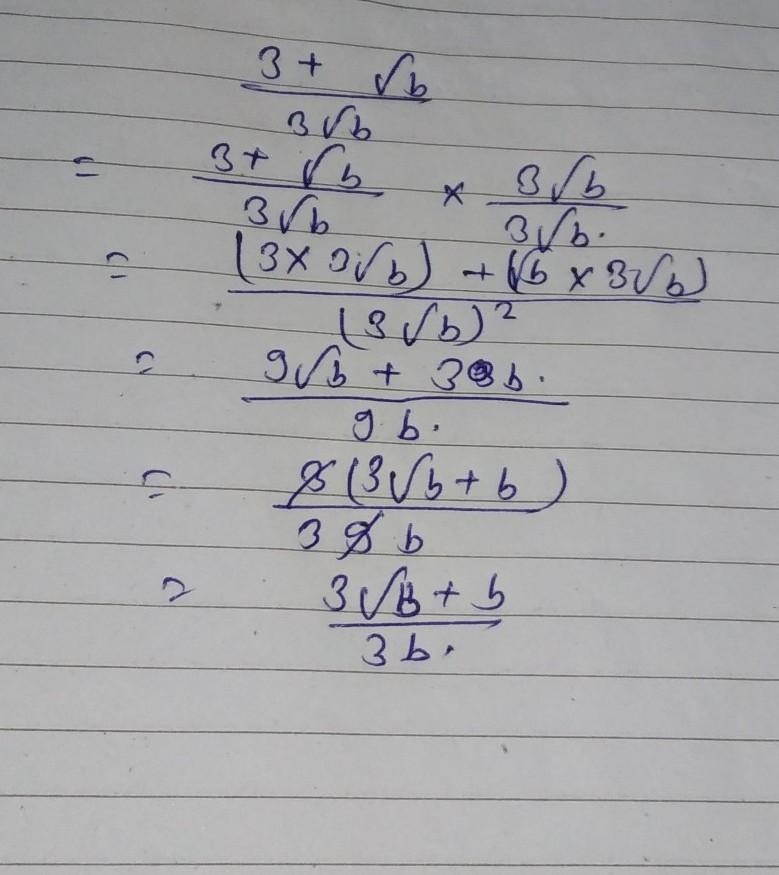 3 + √b
3√b
= 3 + √b × 3√b
3√b 3√b.
= (3 × 3√b) + (√b × 3√b)
(3√b)²
= 9√b + 3b.
9 b.
= 3 (3√b + b)
3 9 b
= 3√b + b
3 b.